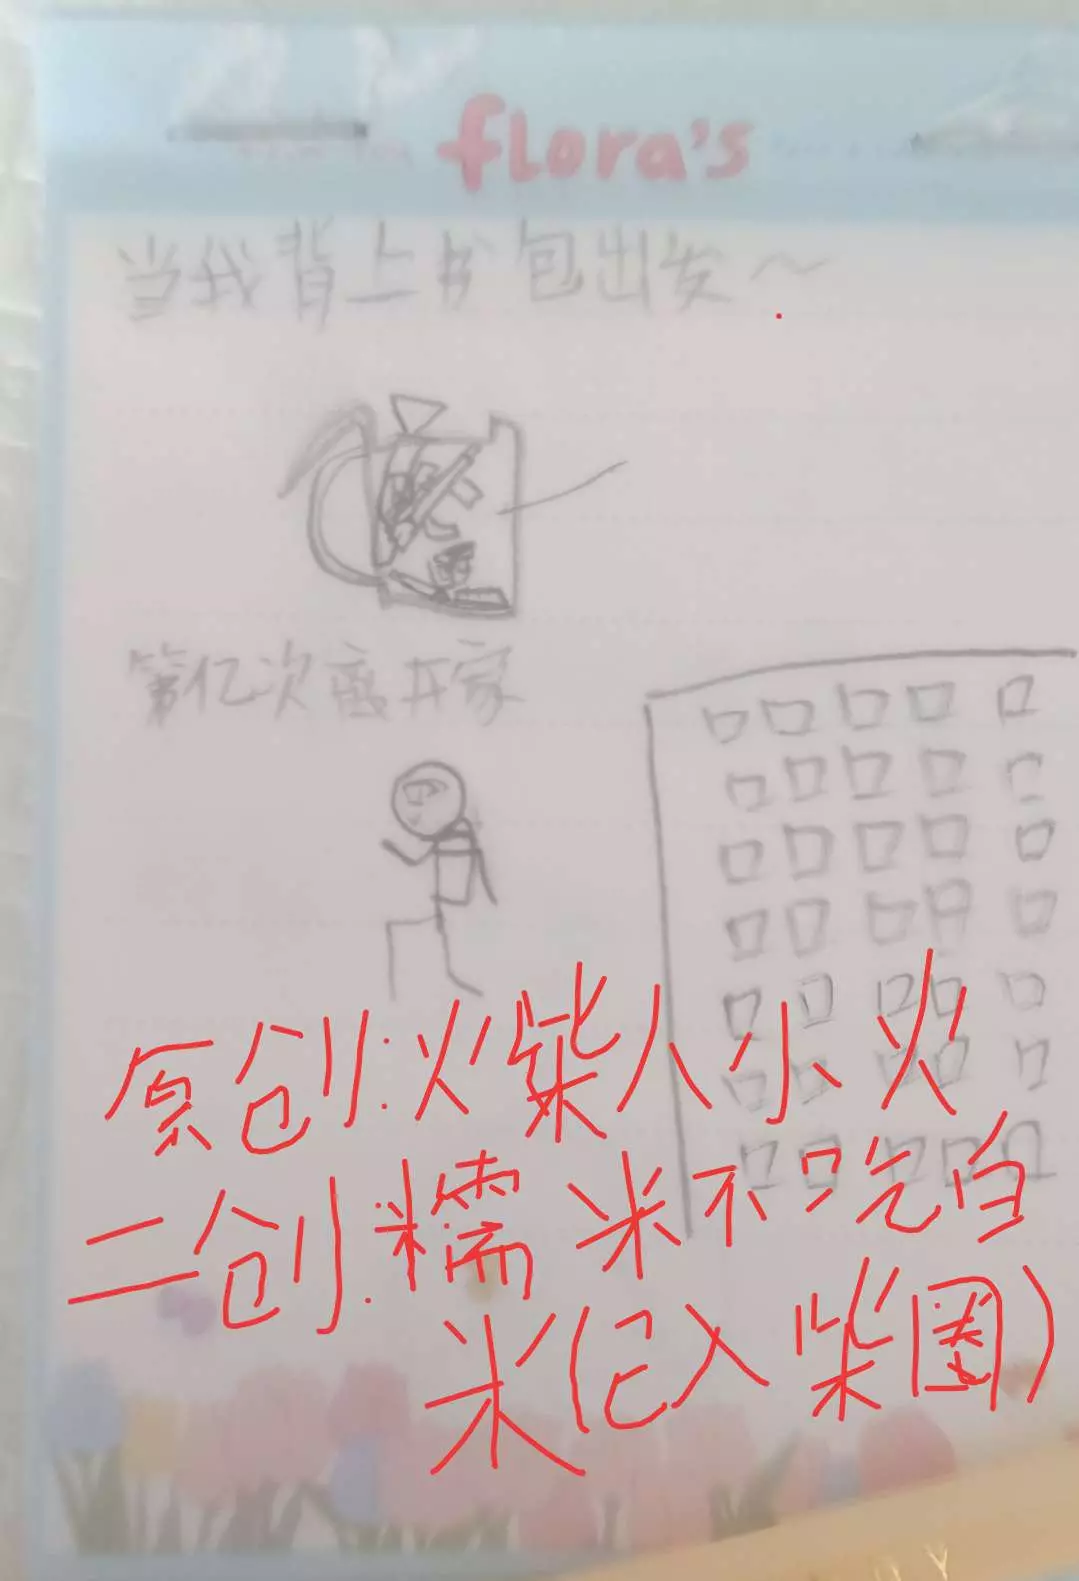 flora's
当我背上书包出发～
第亿次离开家
原创:火柴人小火
二创:糯米不吃白
米(已入柴圈)